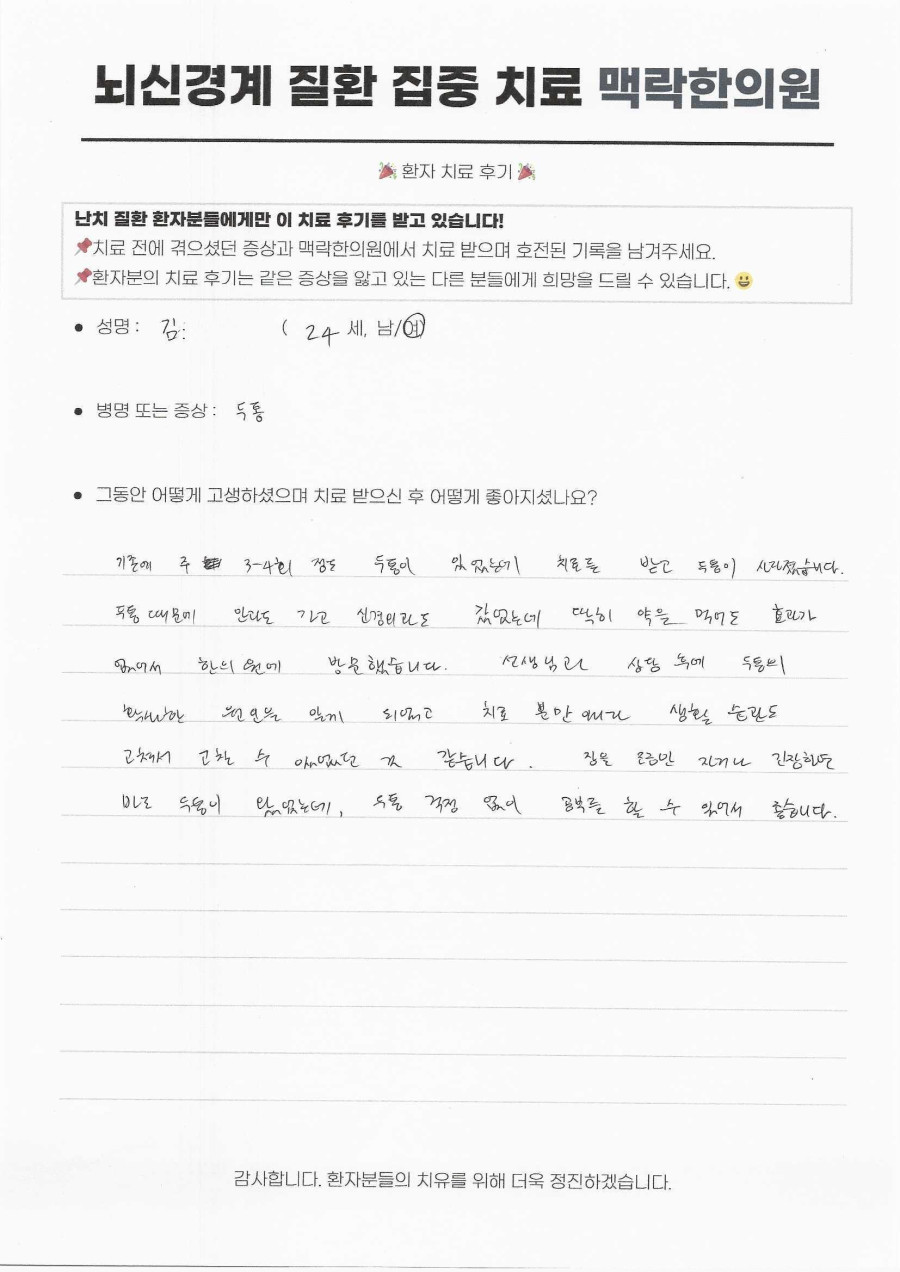 뇌신경계 질환 집중 치료 맥락한의원
환자 치료 후기
난치 질환 환자분들에게만 이 치료 후기를 받고 있습니다!
치료 전에 겪으셨던 증상과 맥락한의원에서 치료 받으며 호전된 기록을 남겨주세요.
환자분의 치료 후기는 같은 증상을 앓고 있는 다른 분들에게 희망을 드릴 수 있습니다.
성명 : 김 ( 24 세, 남/여)
병명 또는 증상 : 두통
그동안 어떻게 고생하셨으며 치료 받으신 후 어떻게 좋아지셨나요?
기존에 주 3-4회 정도 두통이 있었는데 치료를 받고 두통이 사라졌습니다.
두통 때문에 안과도 가고 신경외과도 갔었는데 딱히 약을 먹어도 효과가
없어서 한의원에 방문했습니다. 선생님과 상담 후에 두통의
확실한 원인을 알게 되었고 치료 뿐만 아니라 생활 습관도
고쳐서 고칠 수 있었던 것 같습니다. 잠을 조금만 자거나 긴장하면
바로 두통이 왔었는데, 두통 걱정 없이 공부를 할 수 있어서 좋습니다.
감사합니다. 환자분들의 치유를 위해 더욱 정진하겠습니다.